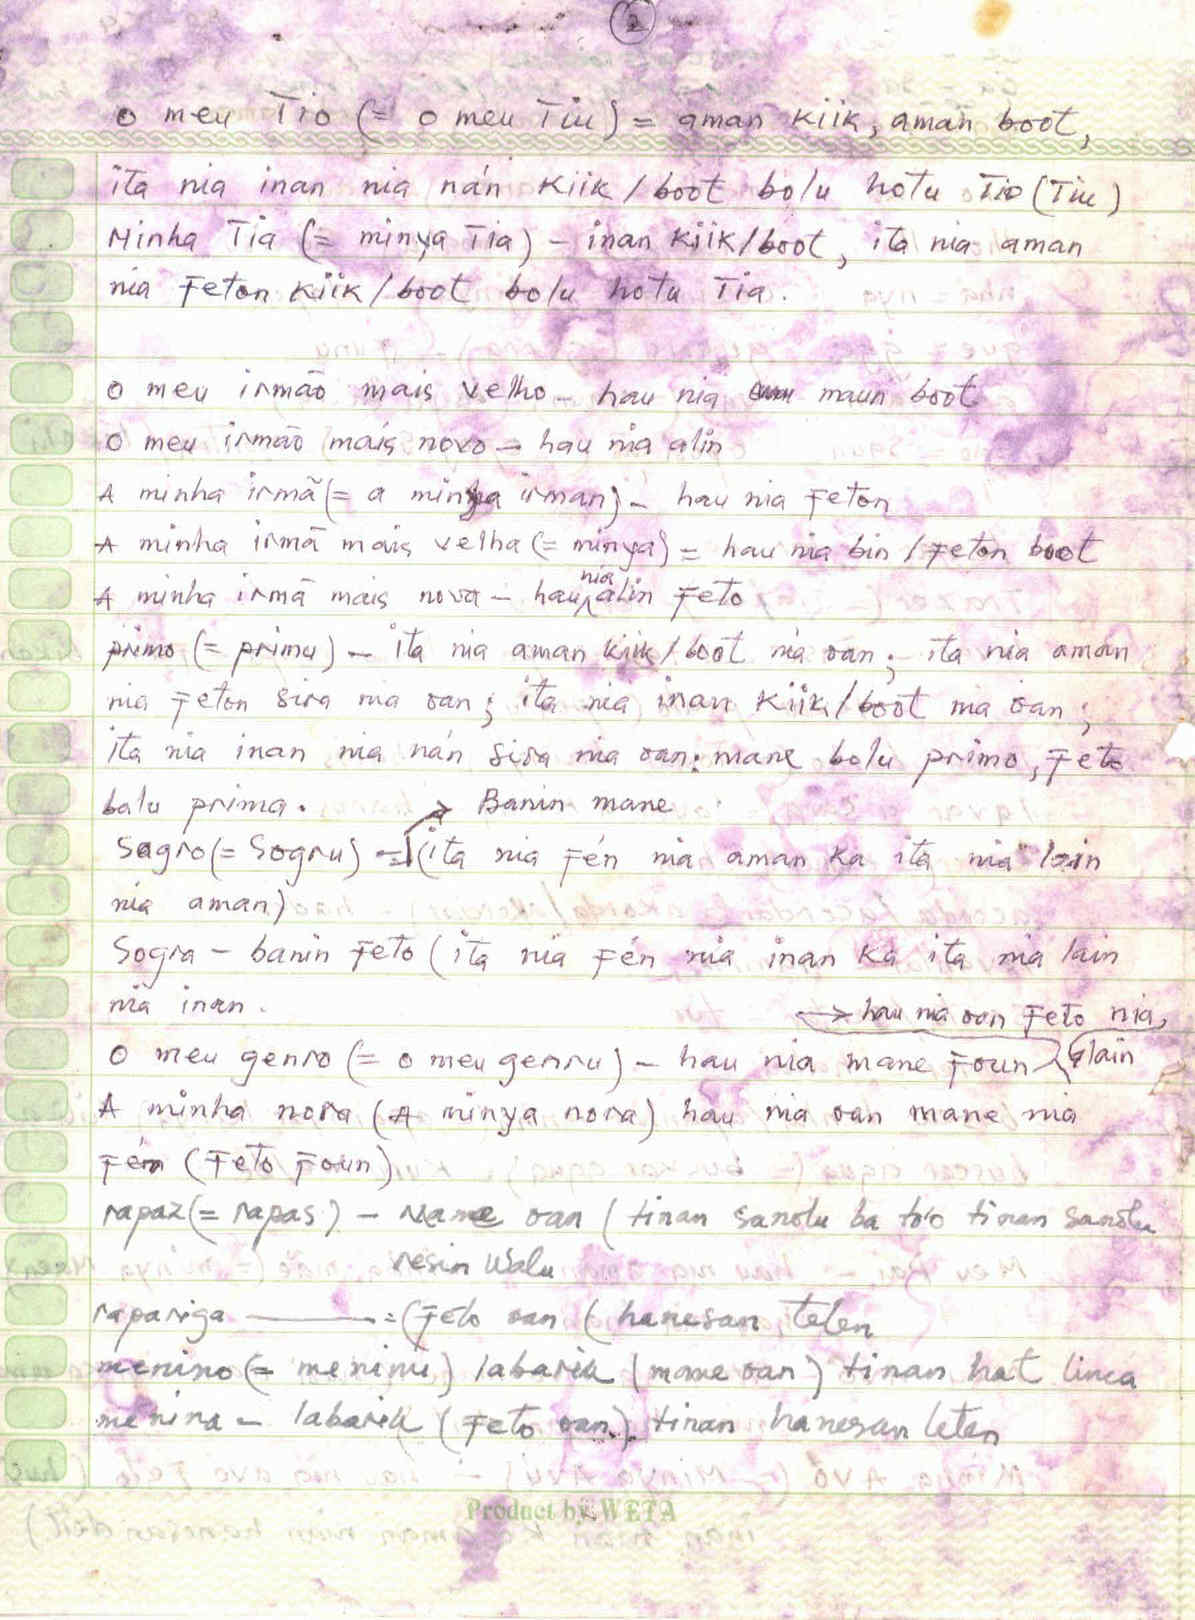 2
O meu Tio (= O meu Tiu) = aman kiik, aman boot,
ita nia inan nia nán kiik / boot bolu hotu Tio (Tiu)
Minha Tia (= minya Tia) - inan kiik/boot, ita nia aman
nia Feton kiik / boot bolu hotu Tia.
O meu irmão mais velho - hau nia maun boot
O meu irmão mais novo - hau nia alin
A minha irmã (= a minya irman) - hau nia Feton
A minha irmã mais velha (= minya) = hau nia bin / Feton boot
A minha irmã mais nova - hau nia alin Feto
primo (= primu) - ita nia aman kiik / boot nia oan; ita nia aman
nia Feton sira nia oan; ita nia inan kiik/boot nia oan;
ita nia inan nia nán sira nia oan: mane bolu primo, Feto
balu prima.
→ Banin mane
Sogro (= Sogru) = (ita nia Fén nia aman ka ita nia lain
nia aman)
Sogra - banin Feto (ita nia Fén nia inan ka ita nia lain
nia inan.
→ hau nia oan Feto nia,
O meu genro (= o meu genru) - hau nia mane Foun lain
A minha nora (A minya nora) hau nia oan mane nia
Fén (Feto Foun)
rapaz (= rapas) - Mane oan (tinan sanolu ba to'o tinan sanolu
resin Walu
rapariga = (Feto oan (hanesan leten
menino (= meninu) labarik (mane oan) tinan hat lima
menina - labarik (Feto oan) tinan hanesan leten
Product by WETA